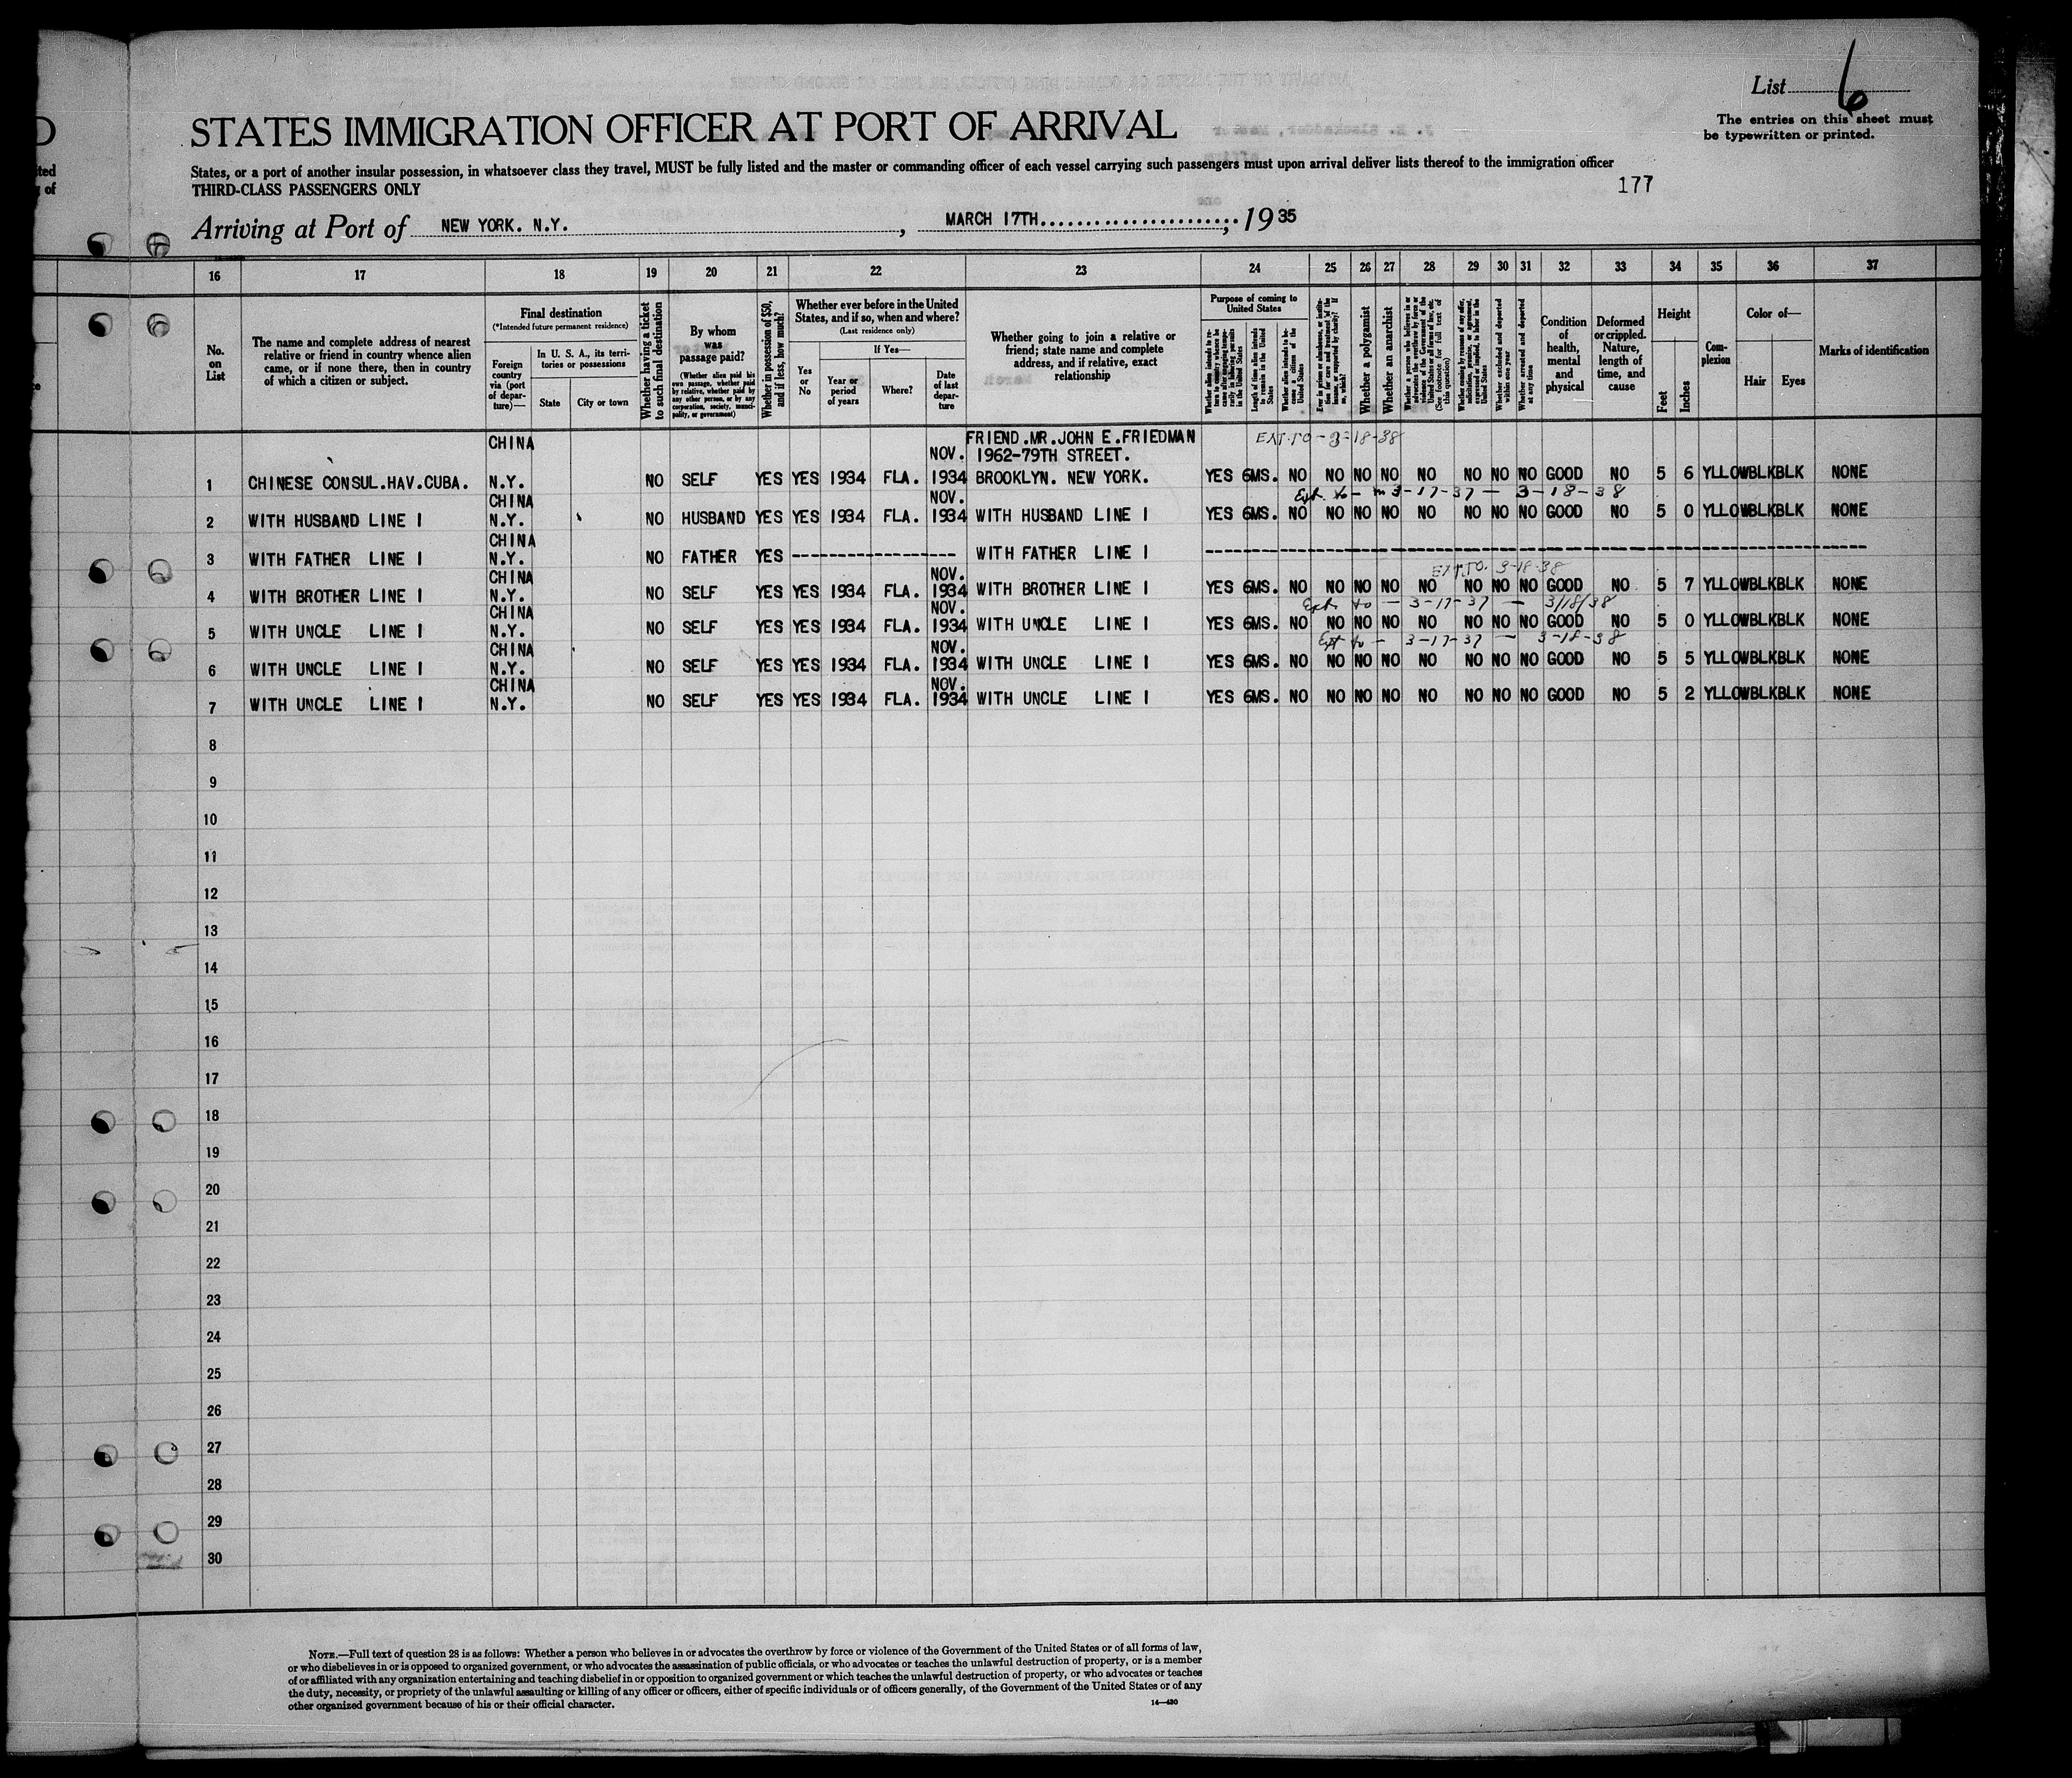 List 6
The entries on this sheet must
be typewritten or printed.
STATES IMMIGRATION OFFICER AT PORT OF ARRIVAL
States, or a port of another insular possession, in whatsoever class they travel, MUST be fully listed and the master or commanding officer of each vessel carrying such passengers must upon arrival deliver lists thereof to the immigration officer
THIRD-CLASS PASSENGERS ONLY
177
Arriving at Port of NEW YORK. N.Y. , MARCH 17TH......................, 1935
16 17 18 19 20 21 22 23 24 25 26 27 28 29 30 31 32 33 34 35 36 37
No.
on
List
The name and complete address of nearest
relative or friend in country whence alien
came, or if none there, then in country
of which a citizen or subject.
Final destination
(*Intended future permanent residence)
Foreign
country
via (port
of depar-
ture)—
In U. S. A., its terri-
tories or possessions
State
City or town
Whether having a ticket
to such final destination
By whom
was
passage paid?
(Whether alien paid his
own passage, whether paid
by relative, whether paid by
any other person, or by any
corporation, society, munici-
pality, or government)
Whether in possession of $50,
and if less, how much?
Whether ever before in the United
States, and if so, when and where?
(Last residence only)
Yes
or
No
If Yes—
Year or
period
of years
Where?
Date
of last
depar-
ture
Whether going to join a relative or
friend; state name and complete
address, and if relative, exact
relationship
Purpose of coming to
United States
Length of time alien intends
to remain in the United
States
Whether alien intends to be-
come a citizen of the
United States
Whether a polygamist
Whether an anarchist
Whether excluded and deported
within one year
Whether arrested and deported
at any time
Condition
of
health,
mental
and
physical
Deformed
or crippled.
Nature,
length of
time, and
cause
Height
Feet
Inches
Com-
plexion
Color of—
Hair
Eyes
Marks of identification
CHINA FRIEND.MR.JOHN E.FRIEDMAN EXT.TO-3-18-38
NOV. 1962-79TH STREET.
1 CHINESE CONSUL.HAV.CUBA. N.Y. NO SELF YES YES 1934 FLA. 1934 BROOKLYN. NEW YORK. YES 6MS. NO NO NO NO NO NO NO NO GOOD NO 5 6 YLLOW BLK BLK NONE
CHINA NOV. Ext. to - 3-17-37 — 3-18-38
2 WITH HUSBAND LINE 1 N.Y. NO HUSBAND YES YES 1934 FLA. 1934 WITH HUSBAND LINE 1 YES 6MS. NO NO NO NO NO NO NO NO GOOD NO 5 0 YLLOW BLK BLK NONE
CHINA
3 WITH FATHER LINE 1 N.Y. NO FATHER YES ---------------- WITH FATHER LINE 1 ----------------
CHINA NOV. EXT.TO. 3-18-38
4 WITH BROTHER LINE 1 N.Y. NO SELF YES YES 1934 FLA. 1934 WITH BROTHER LINE 1 YES 6MS. NO NO NO NO NO NO NO NO GOOD NO 5 7 YLLOW BLK BLK NONE
CHINA NOV. Ext to — 3-17-37 — 3/18/38
5 WITH UNCLE LINE 1 N.Y. NO SELF YES YES 1934 FLA. 1934 WITH UNCLE LINE 1 YES 6MS. NO NO NO NO NO NO NO NO GOOD NO 5 0 YLLOW BLK BLK NONE
CHINA NOV. Ext to — 3-17-37 — 3-18-38
6 WITH UNCLE LINE 1 N.Y. NO SELF YES YES 1934 FLA. 1934 WITH UNCLE LINE 1 YES 6MS. NO NO NO NO NO NO NO NO GOOD NO 5 5 YLLOW BLK BLK NONE
CHINA NOV.
7 WITH UNCLE LINE 1 N.Y. NO SELF YES YES 1934 FLA. 1934 WITH UNCLE LINE 1 YES 6MS. NO NO NO NO NO NO NO NO GOOD NO 5 2 YLLOW BLK BLK NONE
8
9
10
11
12
13
14
15
16
17
18
19
20
21
22
23
24
25
26
27
28
29
30
NOTE.—Full text of question 28 is as follows: Whether a person who believes in or advocates the overthrow by force or violence of the Government of the United States or of all forms of law,
or who disbelieves in or is opposed to organized government, or who advocates the assassination of public officials, or who advocates or teaches the unlawful destruction of property, or is a member
of or affiliated with any organization entertaining and teaching disbelief in or opposition to organized government or which teaches the unlawful destruction of property, or who advocates or teaches
the duty, necessity, or propriety of the unlawful assaulting or killing of any officer or officers, either of specific individuals or of officers generally, of the Government of the United States or of any
other organized government because of his or their official character.
14—430